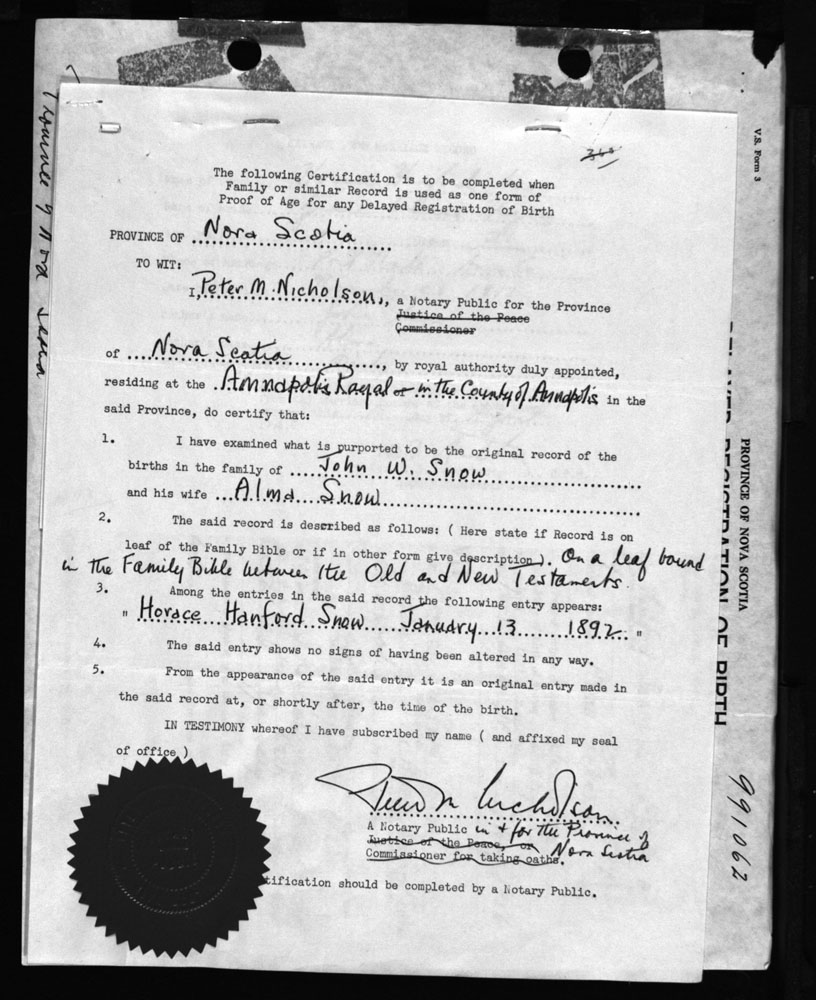 The following Certification is to be completed when
Family or similar Record is used as one form of
Proof of Age for any Delayed Registration of Birth
PROVINCE OF Nova Scotia
TO WIT:
I, Peter M. Nicholson, a Notary Public for the Province
Justice of the Peace
Commissioner
of Nova Scotia, by royal authority duly appointed,
residing at the Annapolis Royal in the County of Annapolis in the
said Province, do certify that:
1. I have examined what is purported to be the original record of the
births in the family of John W. Snow
and his wife Alma Snow
2. The said record is described as follows: ( Here state if Record is on
leaf of the Family Bible or if in other form give description ). On a leaf bound
in the Family Bible between the Old and New Testaments.
3. Among the entries in the said record the following entry appears:
" Horace Hanford Snow January 13 1892. "
4. The said entry shows no signs of having been altered in any way.
5. From the appearance of the said entry it is an original entry made in
the said record at, or shortly after, the time of the birth.
IN TESTIMONY whereof I have subscribed my name ( and affixed my seal
of office )
Peter M Nicholson
A Notary Public in + for the Province of
Justice of the Peace, or Nova Scotia
Commissioner for taking oaths.
tification should be completed by a Notary Public.
V.S. Form 3
PROVINCE OF NOVA SCOTIA
REGISTRATION OF BIRTH
991062
Province of Nova Scotia